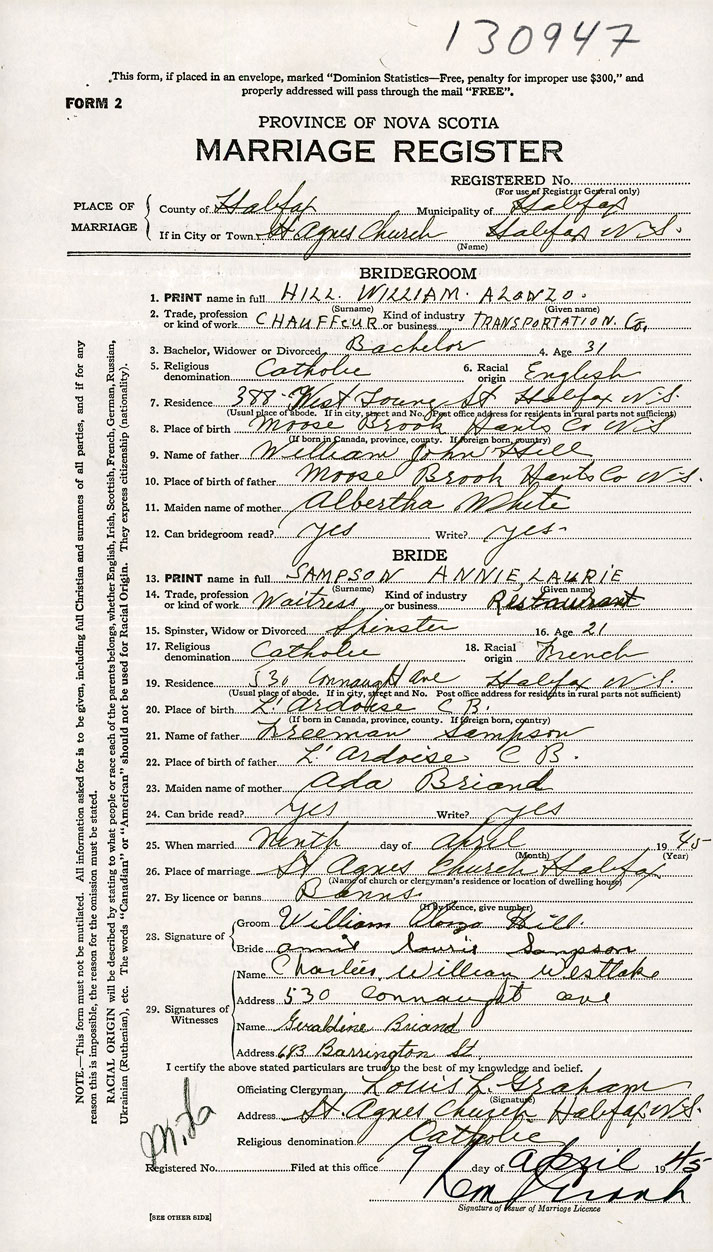 130947
This form, if placed in an envelope, marked "Dominion Statistics—Free, penalty for improper use $300," and
properly addressed will pass through the mail "FREE".
FORM 2
PROVINCE OF NOVA SCOTIA
MARRIAGE REGISTER
REGISTERED No.
(For use of Registrar General only)
PLACE OF MARRIAGE
County of Halifax Municipality of Halifax
If in City or Town St Agnes Church Halifax N.S.
(Name)
BRIDEGROOM
1. PRINT name in full HILL. WILLIAM. ALONZO.
(Surname) (Given name)
2. Trade, profession or kind of work CHAUFFEUR Kind of industry or business TRANSPORTATION. Co.
3. Bachelor, Widower or Divorced Bachelor 4. Age 31
5. Religious denomination Catholic 6. Racial origin English
7. Residence 388 West Young St Halifax N.S.
(Usual place of abode. If in city, street and No. Post office address for residents in rural parts not sufficient)
8. Place of birth Moose Brook Hants Co N.S
(If born in Canada, province, county. If foreign born, country)
9. Name of father William John Hill
10. Place of birth of father Moose Brook Hants Co N.S.
11. Maiden name of mother Albertha White
12. Can bridegroom read? yes Write? yes-
BRIDE
13. PRINT name in full SAMPSON ANNIE, LAURIE
(Surname) (Given name)
14. Trade, profession or kind of work Waitress Kind of industry or business Restaurant
15. Spinster, Widow or Divorced Spinster 16. Age 21
17. Religious denomination Catholic 18. Racial origin French
19. Residence 530 Connaught Ave Halifax N.S.
(Usual place of abode. If in city, street and No. Post office address for residents in rural parts not sufficient)
20. Place of birth L'Ardoise C B.
(If born in Canada, province, county. If foreign born, country)
21. Name of father Freeman Sampson
22. Place of birth of father L'Ardoise C B.
23. Maiden name of mother Ada Briand
24. Can bride read? yes Write? yes
25. When married Ninth day of April 1945
(Month) (Year)
26. Place of marriage St Agnes Church Halifax
(Name of church or clergyman's residence or location of dwelling house)
27. By licence or banns Banns
(If by licence, give number)
28. Signature of Groom William Alonzo Hill
Bride annie laurie Sampson
29. Signatures of Witnesses
Name Charles William Westlake
Address 530 Connaught ave
Name Geraldine Briand
Address 683 Barrington St.
I certify the above stated particulars are true to the best of my knowledge and belief.
Officiating Clergyman Louis L. Graham
(Signature)
Address St. Agnes Church Halifax N.S.
Religious denomination Catholic
Registered No. Filed at this office 9 day of April 1945
Signature of Issuer of Marriage Licence
[SEE OTHER SIDE]
NOTE.—This form must not be mutilated. All information asked for is to be given, including full Christian and surnames of all parties, and if for any
reason this is impossible, the reason for the omission must be stated.
RACIAL ORIGIN will be described by stating to what people or race each of the parents belongs, whether English, Irish, Scottish, French, German, Russian,
Ukrainian (Ruthenian), etc. The words "Canadian" or "American" should not be used for Racial Origin. They express citizenship (nationality).